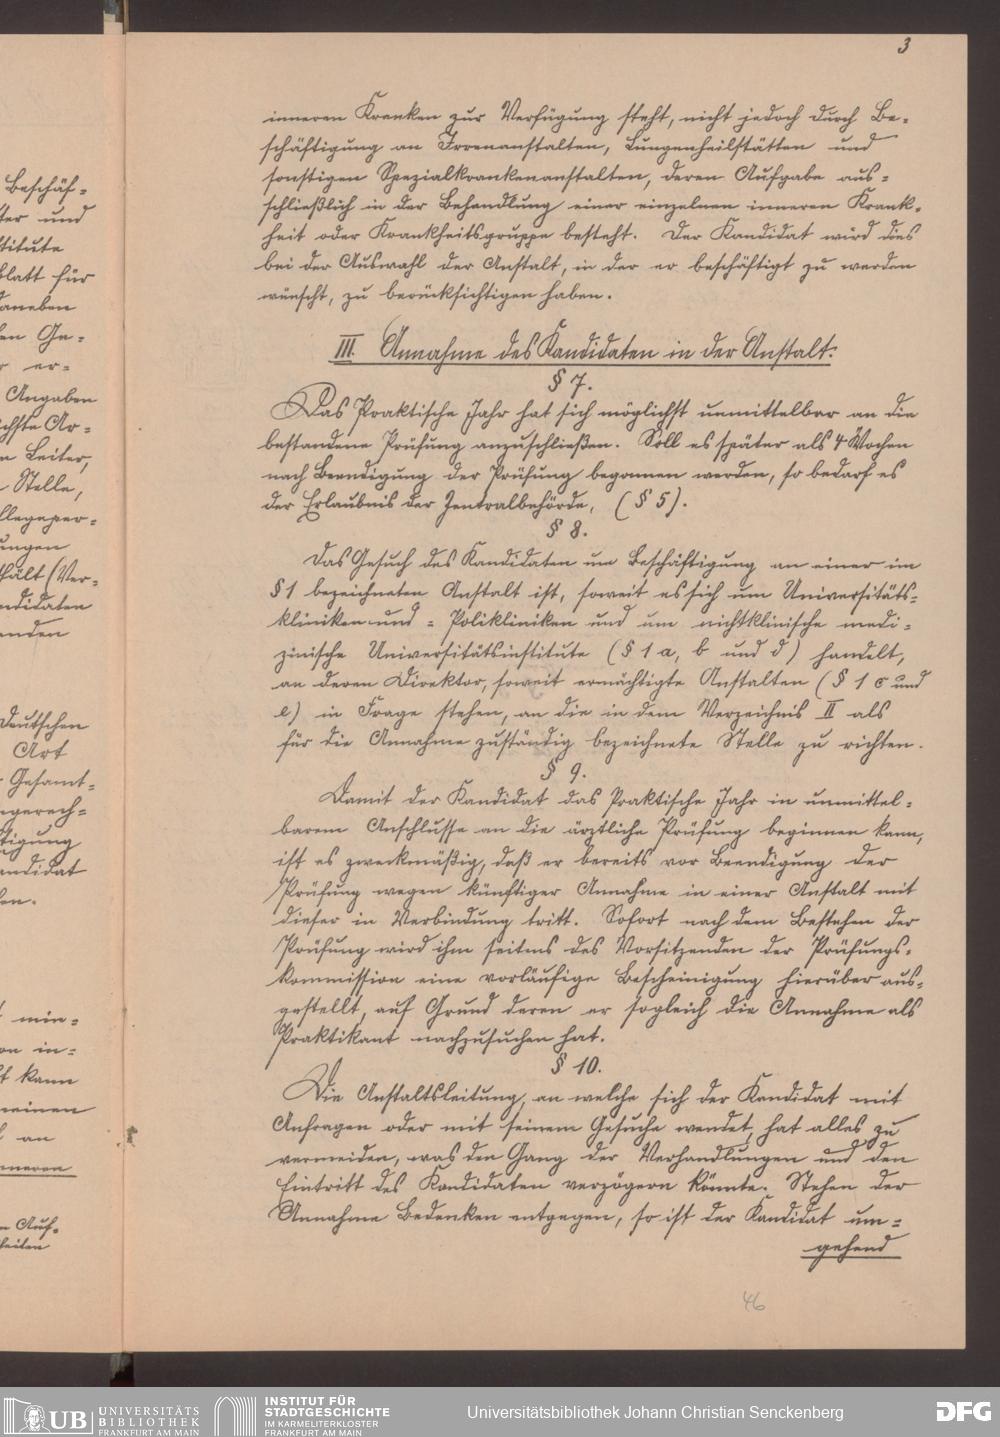 3
inneren Kranken zur Verfügung steht, nicht jedoch durch Be-
schäftigung an Irrenanstalten, Lungenheilstätten und
sonstigen Spezialkrankenanstalten, deren Aufgabe aus-
schließlich in der Behandlung einer einzelnen inneren Krank-
heit oder Krankheitsgruppe besteht. Der Kandidat wird dies
bei der Auswahl der Anstalt, in der er beschäftigt zu werden
wünscht, zu berücksichtigen haben.
III. Annahme des Kandidaten in der Anstalt:
§ 7.
Das Praktische Jahr hat sich möglichst unmittelbar an die
bestandene Prüfung anzuschließen. Soll es später als 4 Wochen
nach Beendigung der Prüfung begonnen werden, so bedarf es
der Erlaubnis der Zentralbehörde, (§ 5).
§ 8.
Das Gesuch des Kandidaten um Beschäftigung an einer im
§ 1 bezeichneten Anstalt ist, soweit es sich um Universitäts-
kliniken und - Polikliniken und um nichtklinische medi-
zinische Universitätsinstitute (§ 1 a, b und d) handelt,
an deren Direktor, soweit ermächtigte Anstalten (§ 1 c und
e) in Frage stehen, an die in dem Verzeichnis II als
für die Annahme zuständig bezeichnete Stelle zu richten.
§ 9.
Damit der Kandidat das Praktische Jahr in unmittel-
barem Anschlusse an die ärztliche Prüfung beginnen kann,
ist es zweckmäßig, daß er bereits vor Beendigung der
Prüfung wegen künftiger Annahme in einer Anstalt mit
dieser in Verbindung tritt. Sofort nach dem Bestehen der
Prüfung wird ihm seitens des Vorsitzenden der Prüfungs-
kommission eine vorläufige Bescheinigung hierüber aus-
gestellt, auf Grund deren er sogleich die Annahme als
Praktikant nachzusuchen hat.
§ 10.
Die Anstaltsleitung, an welche sich der Kandidat mit
Anfragen oder mit seinem Gesuche wendet, hat alles zu
vermeiden, was den Gang der Verhandlungen und den
Eintritt des Kandidaten verzögern könnte. Stehen der
Annahme Bedenken entgegen, so ist der Kandidat um-
gehend
46
Beschäf-
und
blatt für
daneben
Ge-
er-
Angaben
Ar-
Leiter,
Stelle,
(Ver-
Deutschen
Art
Gesamt-
min-
in-
kann
an
Auf-
UB UNIVERSITÄTS
BIBLIOTHEK
FRANKFURT AM MAIN
INSTITUT FÜR
STADTGESCHICHTE
IM KARMELITERKLOSTER
FRANKFURT AM MAIN
Universitätsbibliothek Johann Christian Senckenberg
DFG